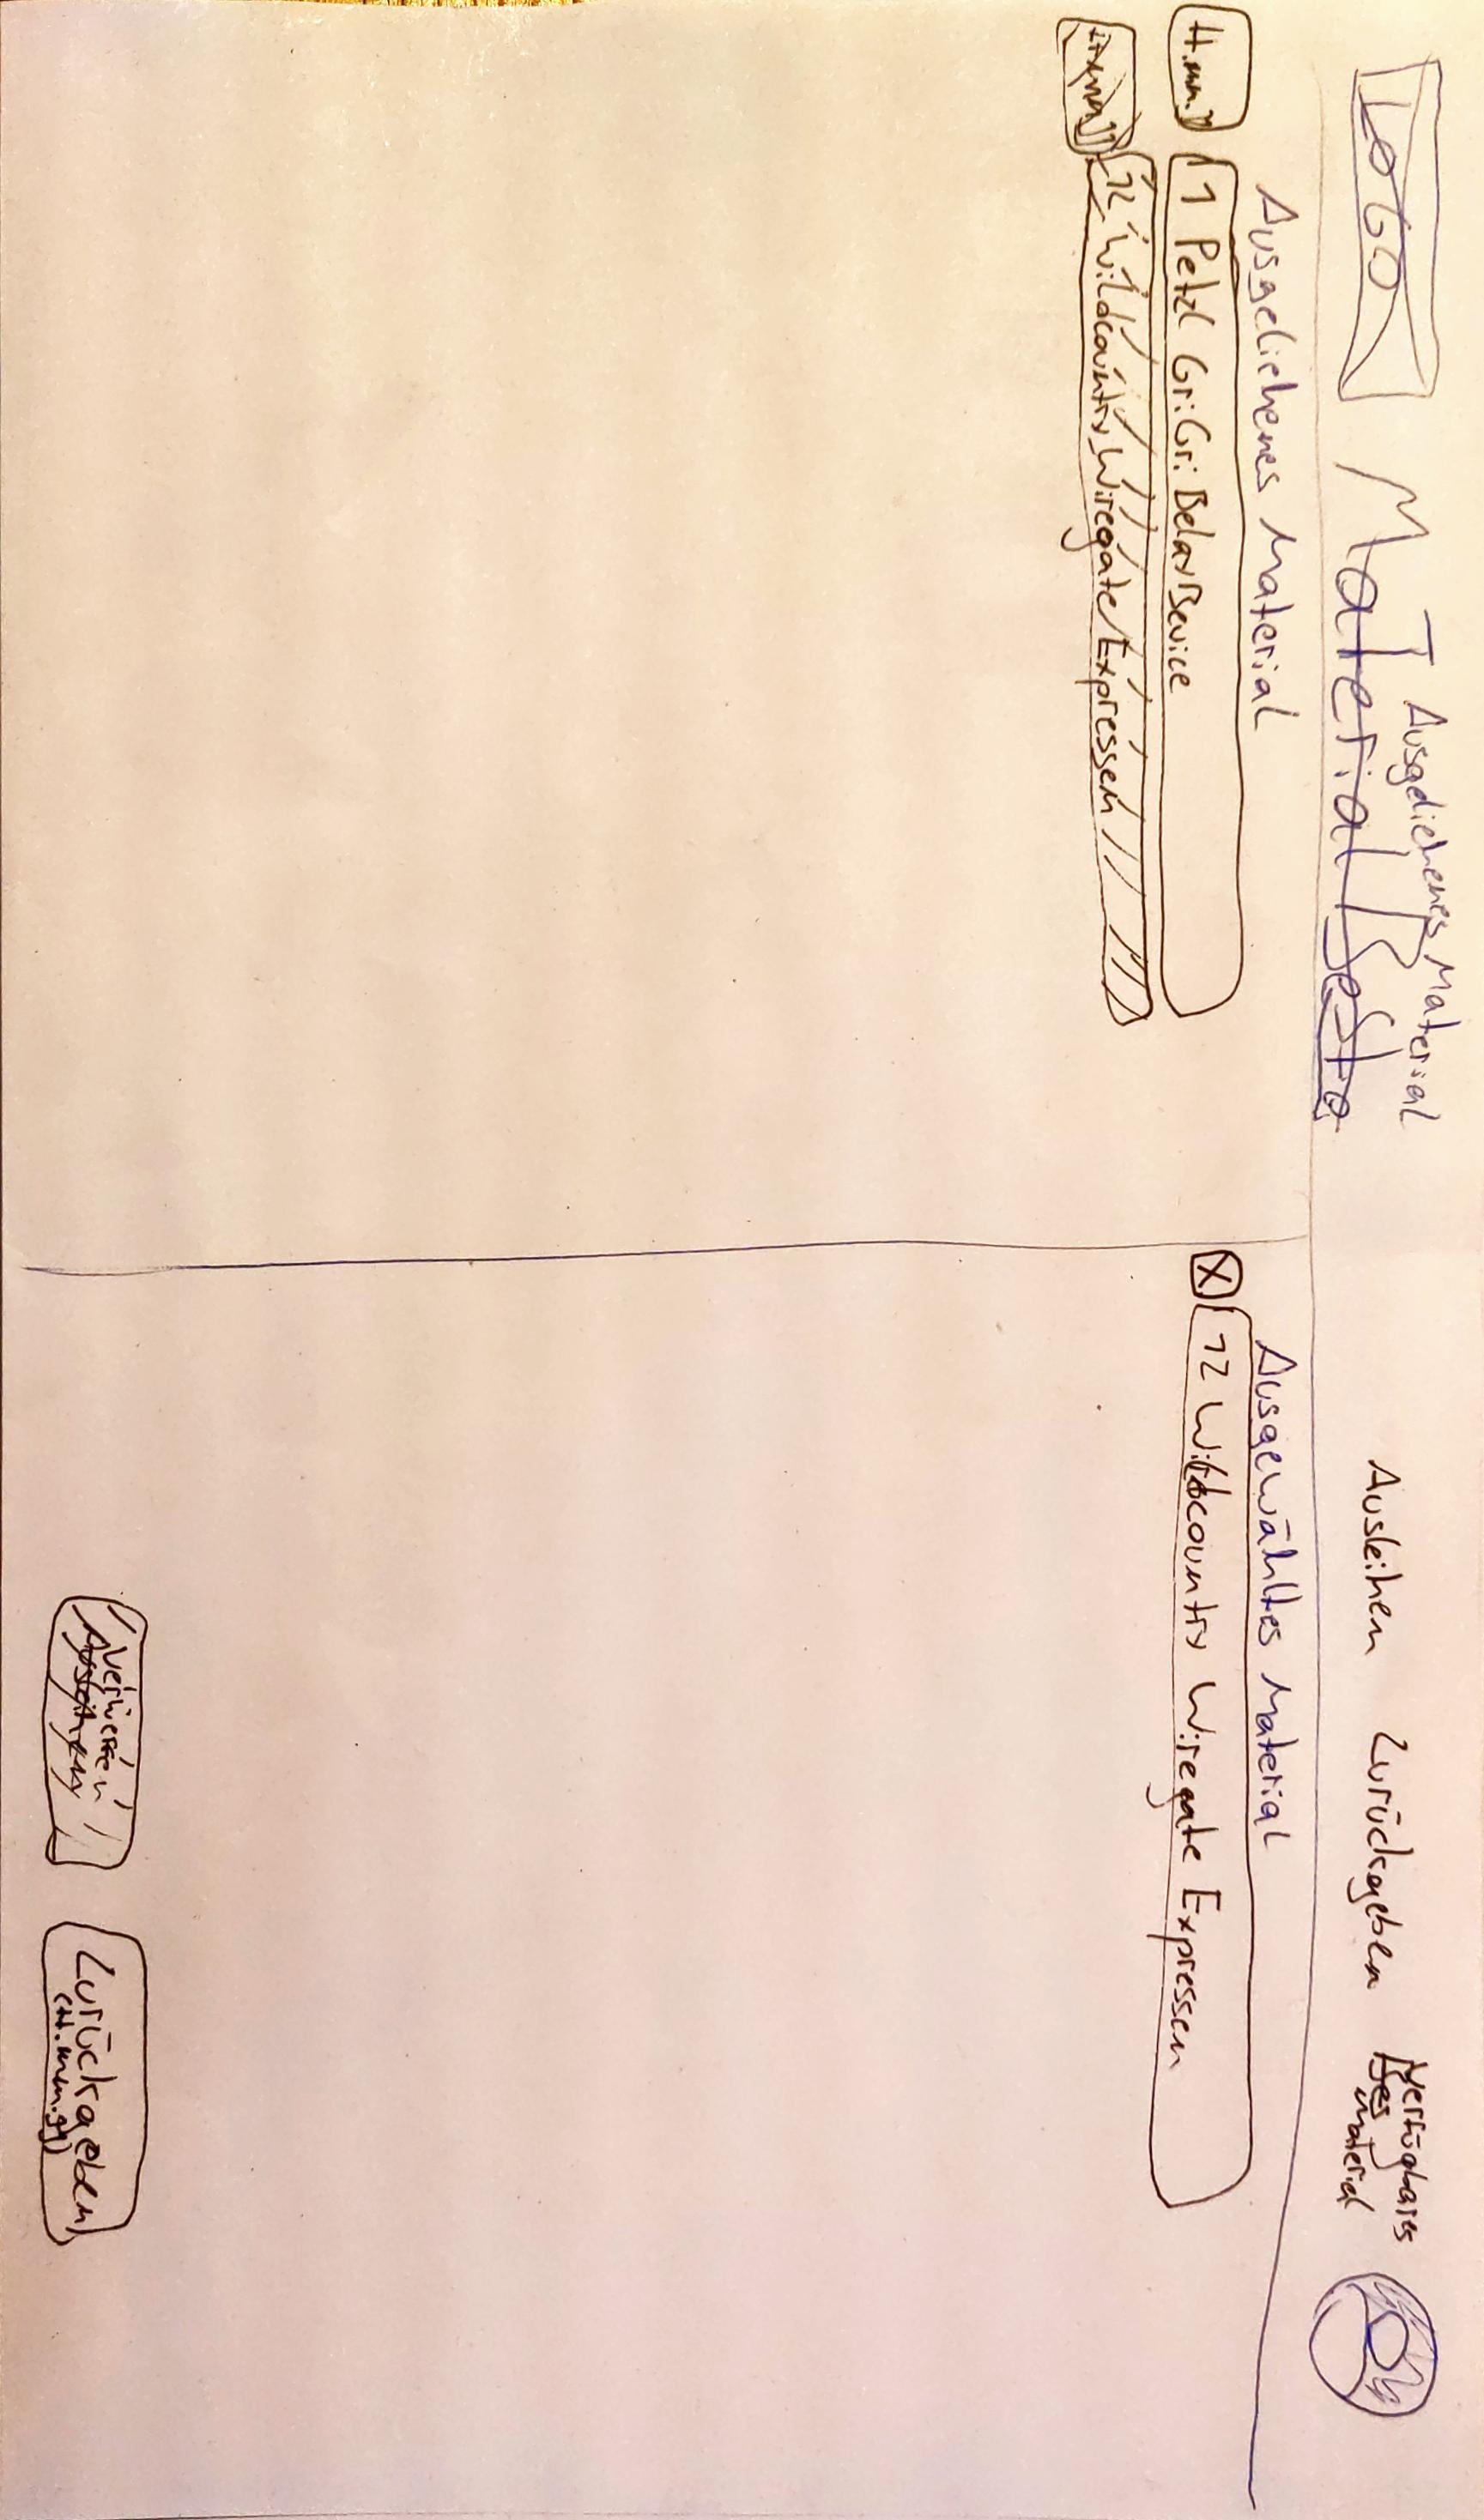 LOGO
Ausgeliehenes Material
Material SeSta
Ausleihen
Zurückgeben
Verfügbares
Material
Ausgeliehenes Material
1 Petzl GriGri Belay Device
12 Wildcountry Wiregate Expressen
Ausgewähltes Material
X
12 Wildcountry Wiregate Expressen
Verlieren
Ausleihen
Zurückgeben